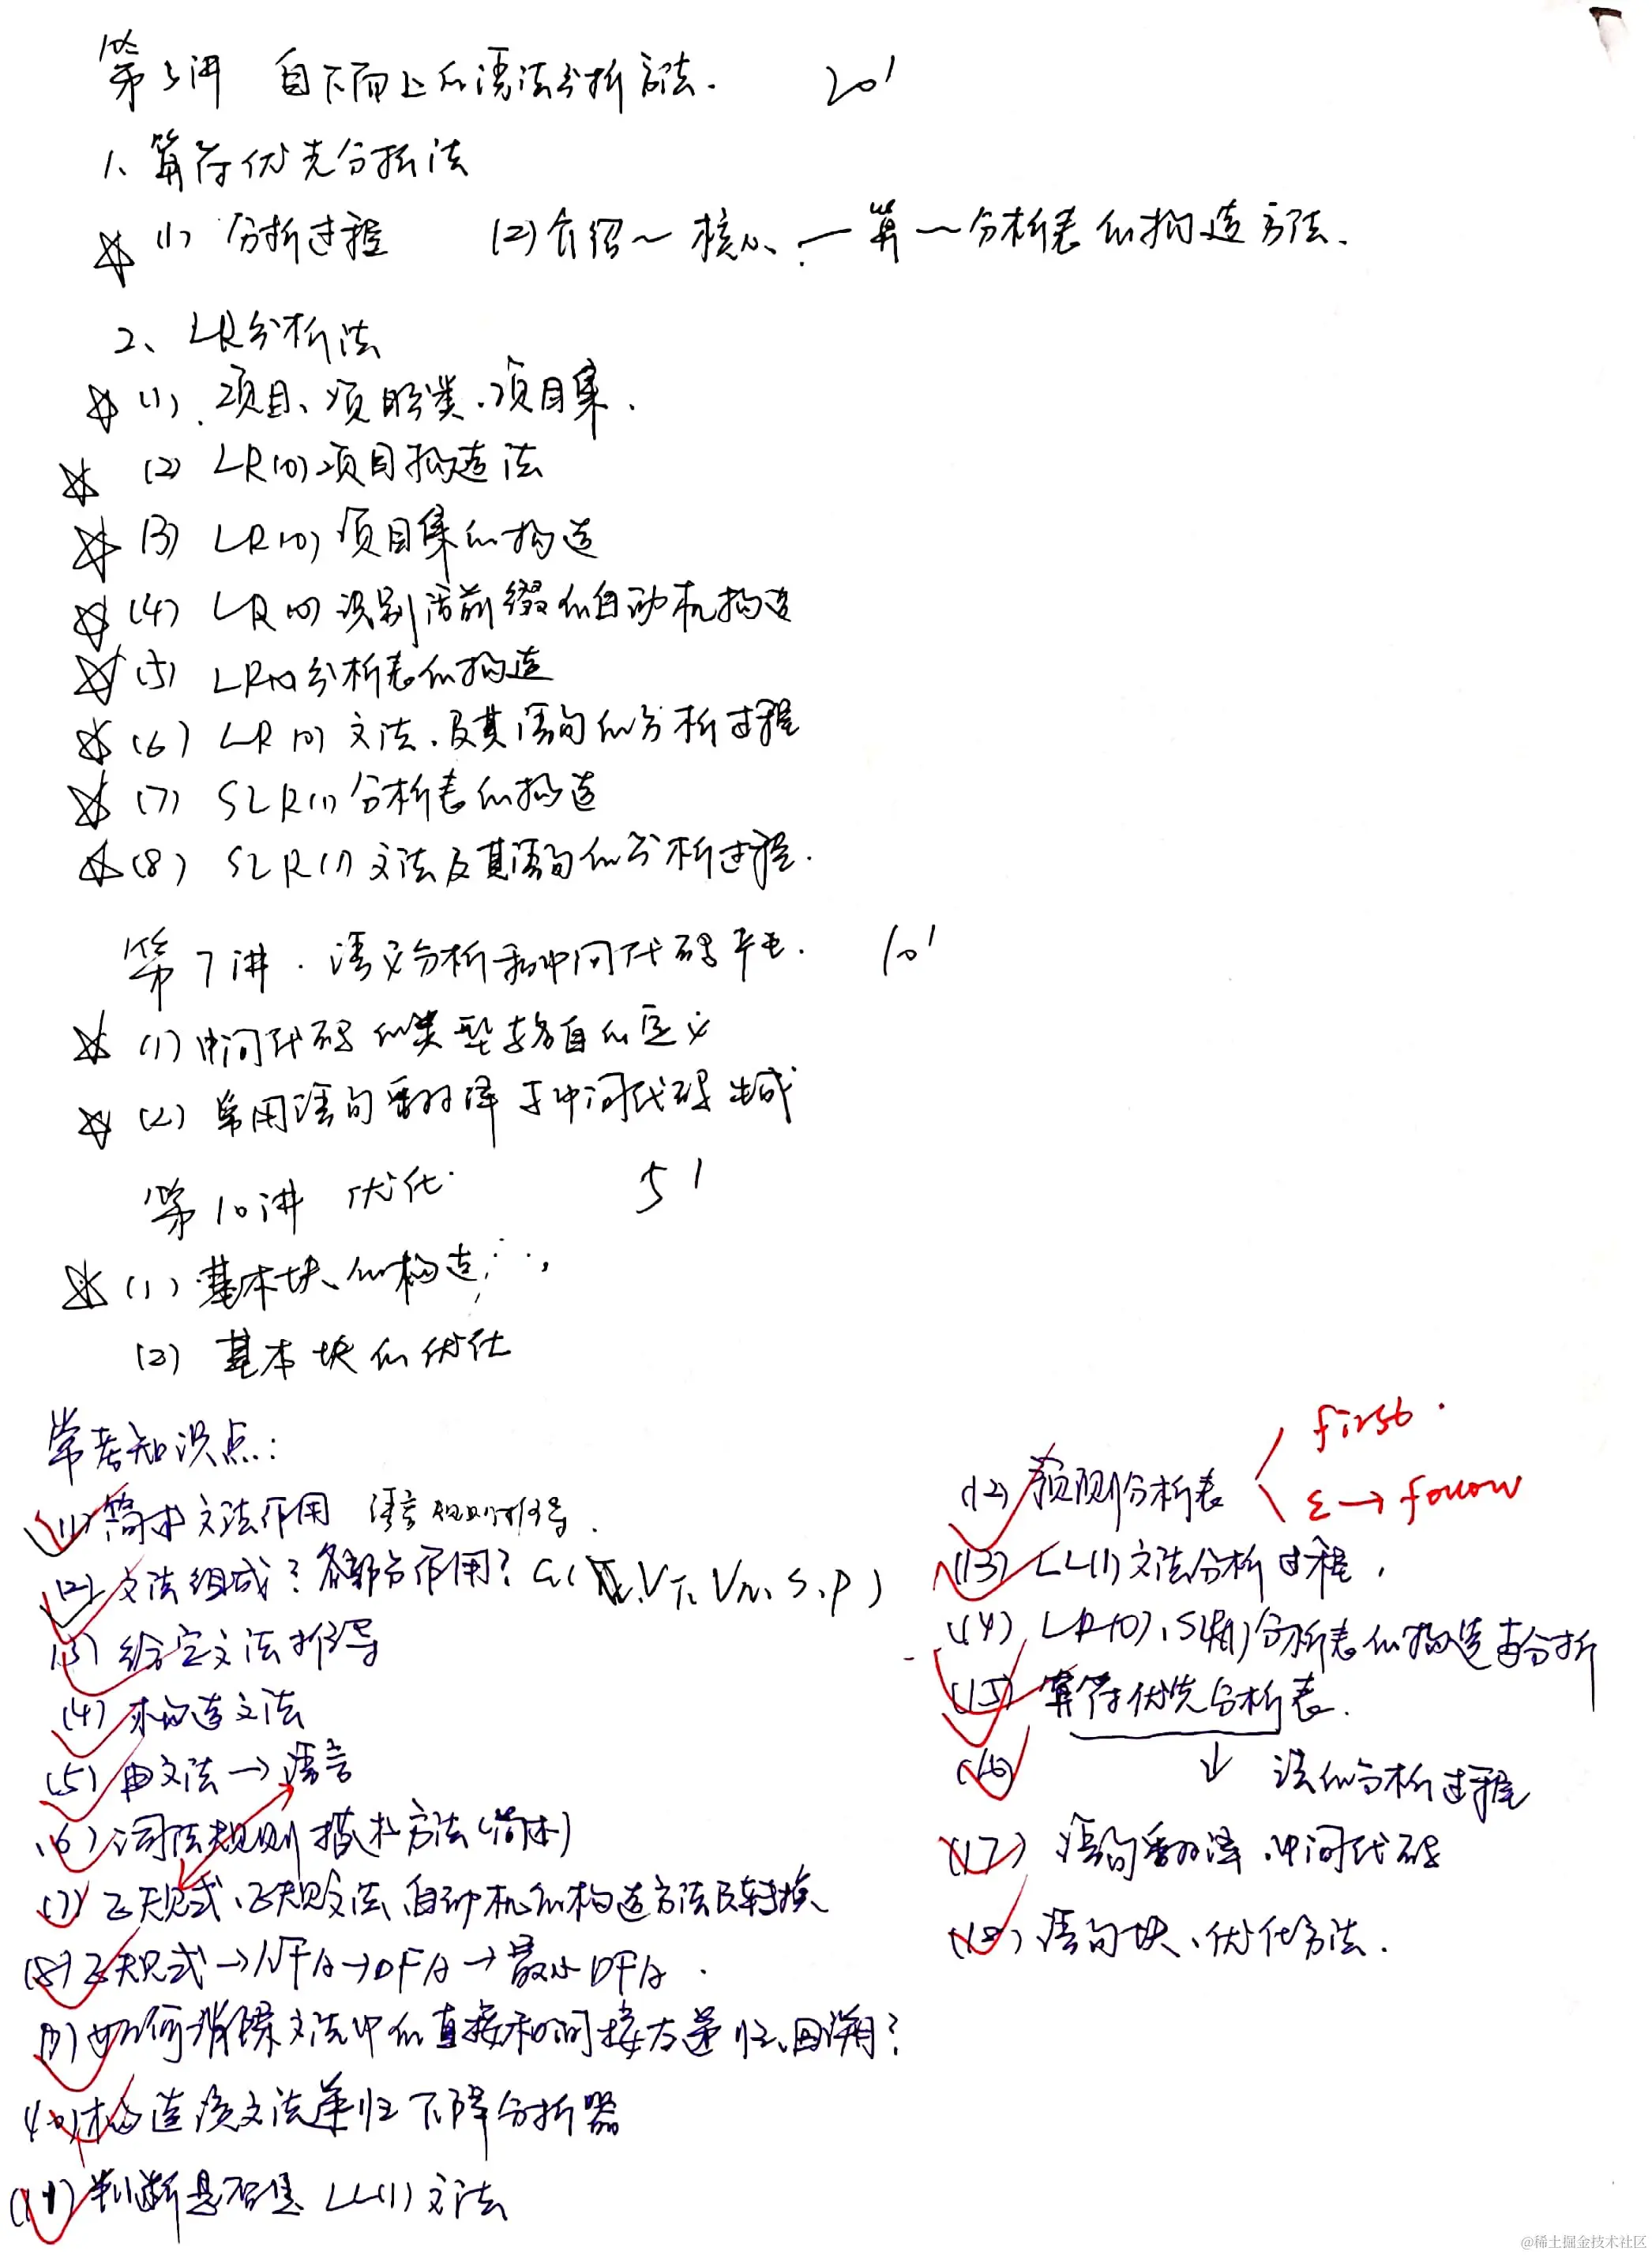 第5讲 自下而上的语法分析方法. 20'
1、算符优先分析法
☆ (1) 分析过程 (2) 介绍~核心. 一算~分析表的构造方法.
2、LR分析法
☆ (1). 项目、项目分类、项目集.
☆ (2) LR(0)项目构造法
☆ (3) LR(0) 项目集的构造
☆ (4) LR(0) 识别活前缀的自动机构造
☆ (5) LR(0)分析表的构造
☆ (6) LR(0) 文法、及其语句的分析过程
☆ (7) SLR(1)分析表的构造
☆ (8) SLR(1) 文法及其语句的分析过程.
第7讲. 语义分析和中间代码产生. 10'
☆ (1) 中间代码的类型与各自的定义
☆ (2) 常用语句翻译于中间代码生成
第10讲 优化. 5'
☆ (1) 基本块的构造
(2) 基本块的优化
常考知识点:
(1) 简述文法作用 语言规则推导.
(2) 文法组成? 各部分作用? G(VT、VN、S、P)
(3) 给定文法推导
(4) 构造文法
(5) 由文法→语言
(6) 词法规则描述方法(简述)
(7) 正规式、正规文法、自动机的构造方法及转换
(8) 正规式→NFA→DFA→最小DFA.
(9) 如何消除文法中的直接和间接左递归、回溯?
(10) 构造该文法递归下降分析器
(11) 判断是否是 LL(1) 文法
(12) 预测分析表
first.
ε→follow
(13) LL(1)文法分析过程.
(14) LR(0)、SLR(1)分析表的构造与分析
(15) 算符优先分析表.
(16) ↓ 该的分析过程
(17) 语句翻译、中间代码
(18) 语句块、优化方法.
@稀土掘金技术社区